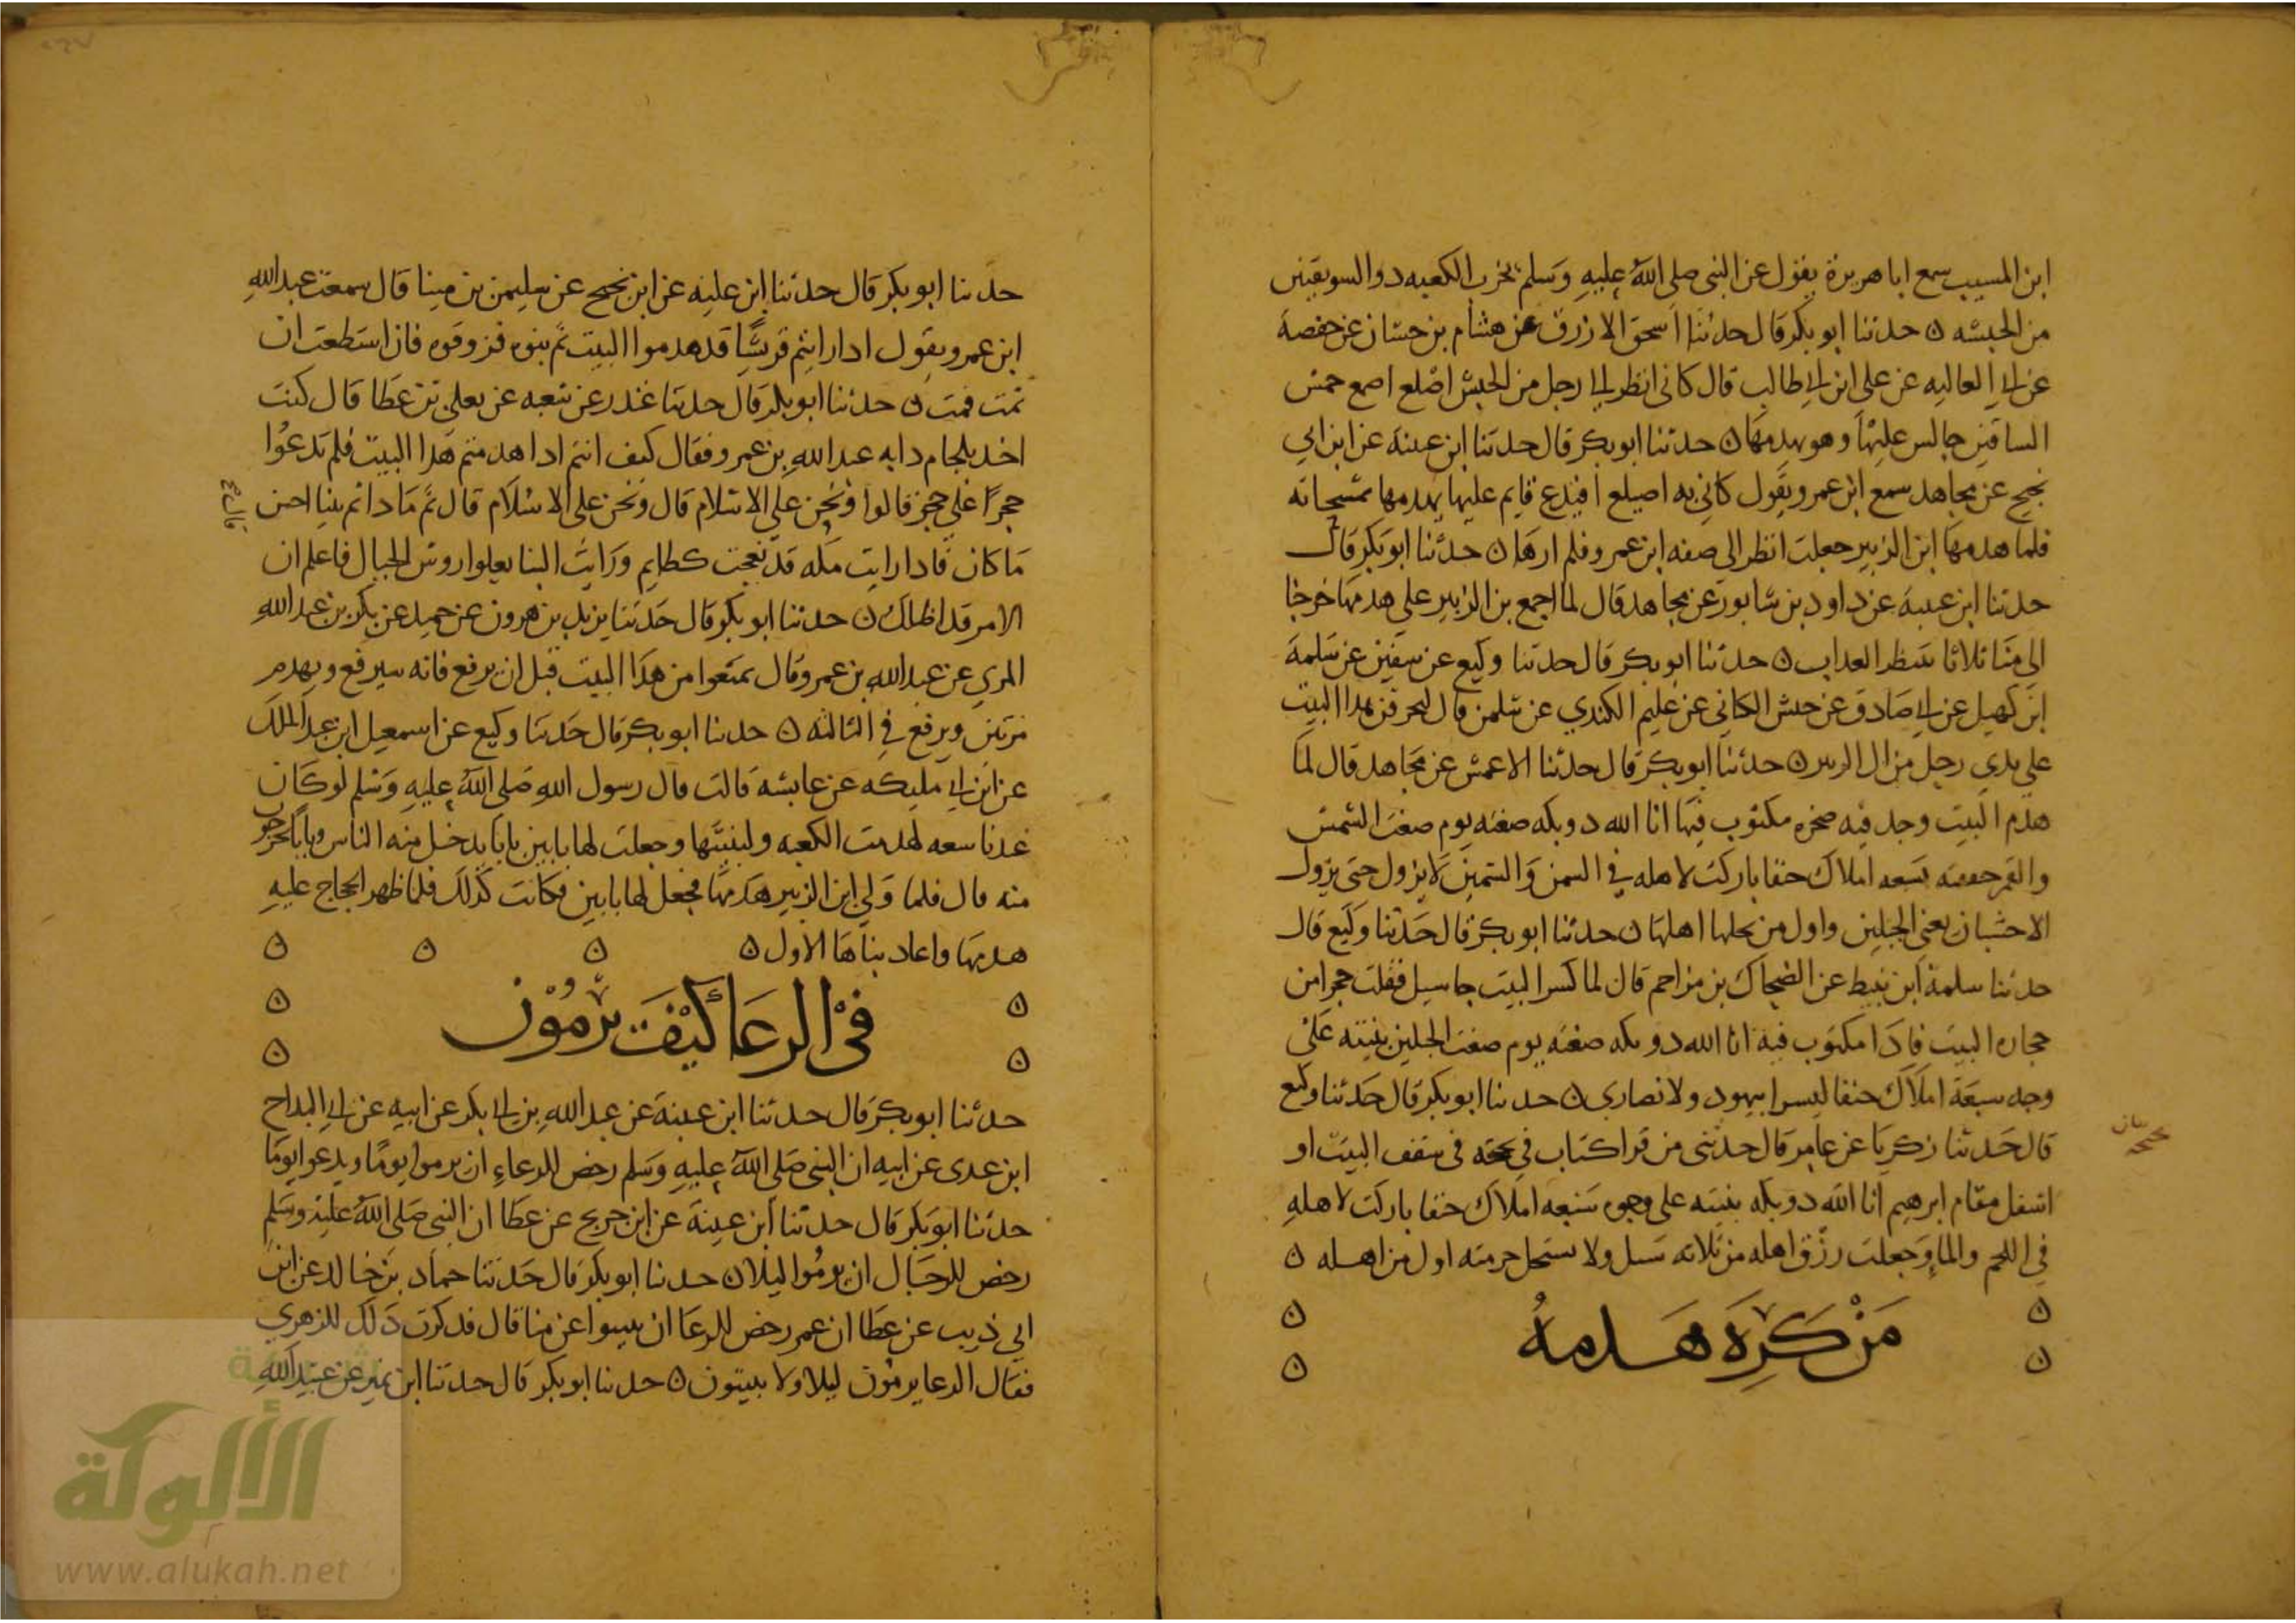 ابن المسيب سمع ابا هريرة يقول عن النبي صلى الله عليه وسلم يخرب الكعبه ذو السويقتين
من الحبشه ن حدثنا ابو بكر قال حدثنا اسحق الازرق عن هشام بن حسان عن حفصة
عن ابي العاليه عن علي ابن ابي طالب قال كاني انظر الى رجل من الحبش اصلع اصمع حمش
الساقين جالس عليها وهو يهدمها ن حدثنا ابو بكر قال حدثنا ابن عيينة عن ابن ابي
نجيح عن مجاهد سمع ابن عمرو يقول كاني به اصيلع افيدع قايم عليها يهدمها بمسحاته
فلما هدمها ابن الزبير جعلت انظر الى صفه ابن عمرو فلم ارها ن حدثنا ابو بكر قال
حدثنا ابن عيينة عن داود بن شابور عن مجاهد قال لما اجمع بن الزبير على هدمها خرجنا
الى منا ثلاثا ننتظر العذاب ن حدثنا ابو بكر قال حدثنا وكيع عن سفين عن سلمة
ابن كهيل عن ابي صادق عن حنش الكناني عن عليم الكندي عن سلمن قال ليحرقن هذا البيت
على يدي رجل من ال الزبير ن حدثنا ابو بكر قال حدثنا الاعمش عن مجاهد قال لما
هدم البيت وجد فيه صخره مكتوب فيها انا الله ذو بكه صغته يوم صغت الشمس
والقمر حففته بسبعه املاك حنفا باركت لاهله في السمن والسمين لا يزول حتى يزول
الاخشبان يعني الجبلين واول من يحلها اهلها ن حدثنا ابو بكر قال حدثنا وكيع قال
حدثنا سلمة ابن نبيط عن الضحاك بن مزاحم قال لما كسر البيت جا سيل فقلب حجرا من
حجاره البيت فاذا مكتوب فيه انا الله ذو بكه صغته يوم صغت الجبلين بنيته على
وجه سبعة املاك حنفا ليسرا بيهود ولا نصارى ن حدثنا ابو بكر قال حدثنا وكيع
قال حدثنا زكريا عن عامر قال حدثني من قرا كتاب في تحته في سقف البيت او
اسفل مقام ابرهيم انا الله ذو بكه بنيته على وجوه سبعه املاك حنفا باركت لاهله
في اللحم والماء وجعلت رزق اهله من ثلاثه سبل ولا يستحل حرمته اول من اهله ن
من كره هدمه
حدثنا ابو بكر قال حدثنا ابن عليه عن ابن نجيح عن سليمن بن مينا قال سمعت عبد الله
ابن عمرو يقول اذا رايتم قريشا قد هدموا البيت ثم بنوه فزوقوه فان استطعت ان
تمت فمت ن حدثنا ابو بكر قال حدثنا غندر عن شعبه عن يعلى بن عطا قال كنت
اخذ بلجام دابه عبد الله بن عمرو فقال كيف انتم اذا هدمتم هذا البيت فلم تدعوا
حجرا على حجر قالوا ونحن على الاسلام قال ونحن على الاسلام قال ثم ماذا ثم بنيا احسن
ما كان فاذا رايت مكه قد بعجت كظايم ورايت البنا يعلوا روس الجبال فاعلم ان
الامر قد اظلك ن حدثنا ابو بكر قال حدثنا يزيد بن هرون عن حميد عن بكر بن عبد الله
المزي عن عبد الله بن عمرو قال تمتعوا من هذا البيت قبل ان يرفع فانه سيرفع ويهدم
مرتين ويرفع في الثالثه ن حدثنا ابو بكر قال حدثنا وكيع عن اسمعيل ابن عبد الملك
عن ابن ابي مليكه عن عايشه قالت قال رسول الله صلى الله عليه وسلم لو كان
عندنا سعه لهدمت الكعبه ولبنيتها وجعلت لها بابين بابا يدخل منه الناس وبابا يخرجون
منه قال فلما ولي ابن الزبير هدمها فجعل لها بابين فكانت كذلك فلما ظهر الحجاج عليه
هدمها واعاد بناها الاول ن
في الرعا كيف يرمون
حدثنا ابو بكر قال حدثنا ابن عيينة عن عبد الله بن ابي بكر عن ابيه عن ابي البداح
ابن عدى عن ابيه ان النبي صلى الله عليه وسلم رخص للرعاء ان يرموا يوما ويدعوا يوما
حدثنا ابو بكر قال حدثنا ابن عيينة عن ابن جريج عن عطا ان النبي صلى الله عليه وسلم
رخص للرحال ان يرموا ليلا ن حدثنا ابو بكر قال حدثنا حماد بن خالد عن ابن
ابي ذيب عن عطا ان عمر رخص للرعا ان يبيتوا عن منا قال فذكرت ذلك للزهري
فقال الرعا يرمون ليلا ولا يبيتون ن حدثنا ابو بكر قال حدثنا ابن نمير عن عبيد الله
الألوكة
www.alukah.net